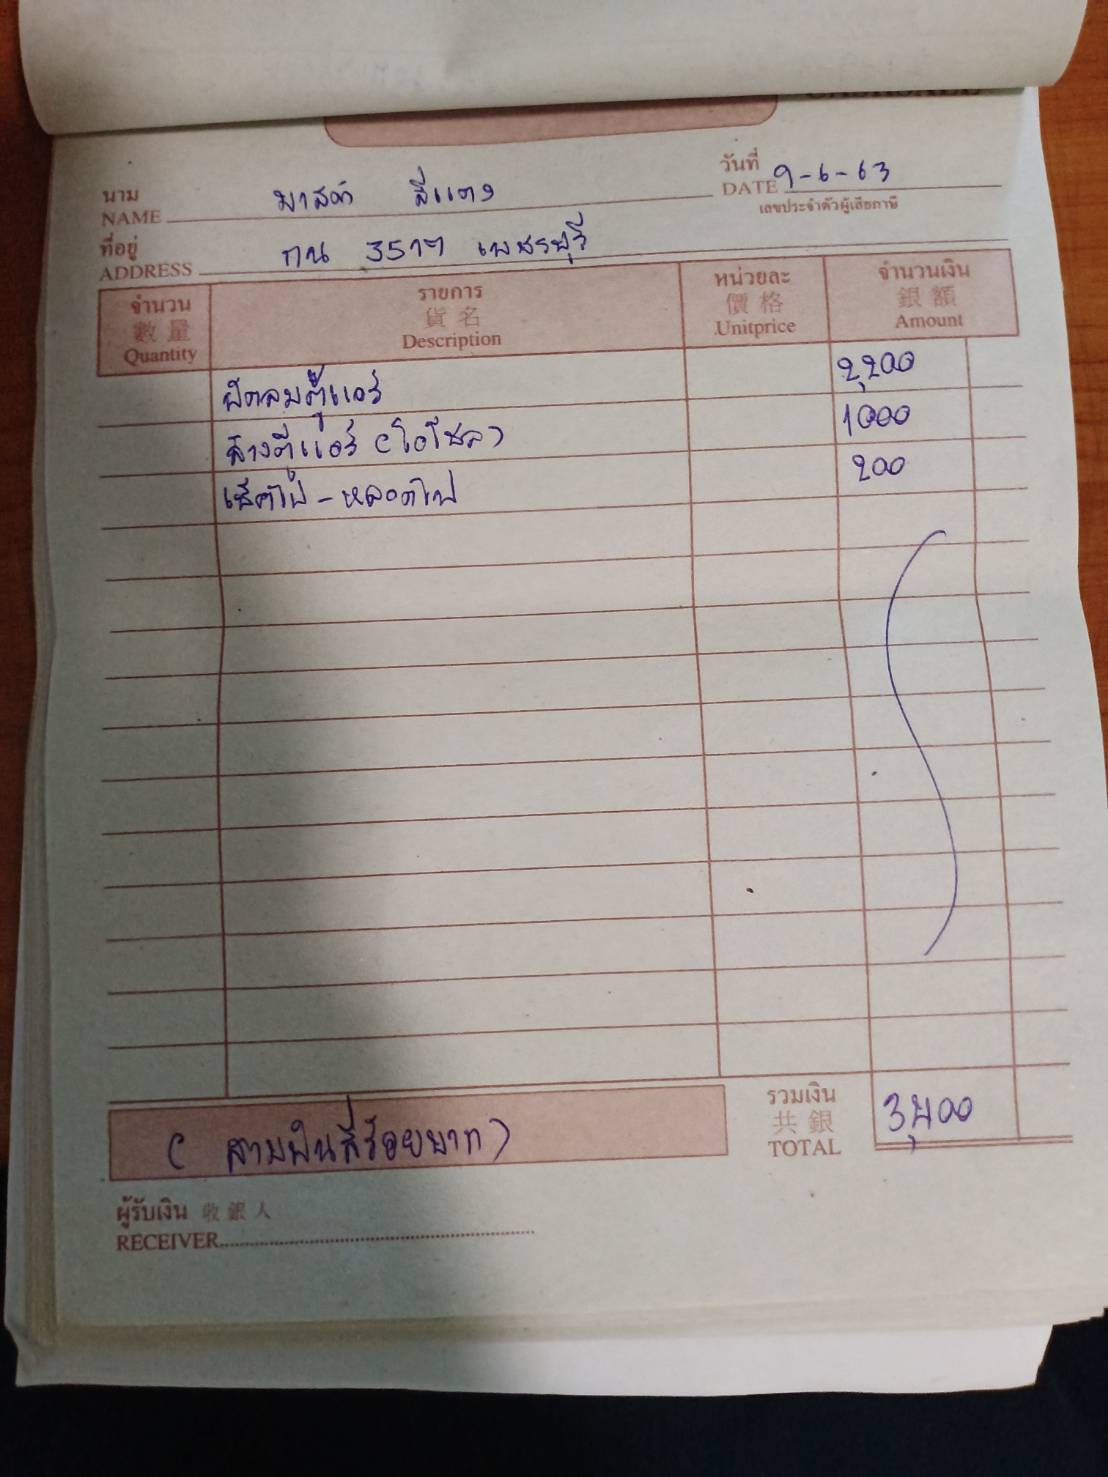 นาม
NAME มาสด้า สีแดง
วันที่
DATE 9-6-63
เลขประจำตัวผู้เสียภาษี
ที่อยู่
ADDRESS กน 3577 เพชรบุรี
จำนวน รายการ หน่วยละ จำนวนเงิน
數量 貨名 價格 銀額
Quantity Description Unitprice Amount
พัดลมตู้แอร์ 2,200
ล้างตู้แอร์ (โอริ่ง) 1000
เช็คไฟ - หลอดไฟ 200
รวมเงิน
共銀
TOTAL 3,400
(สามพันสี่ร้อยบาท)
ผู้รับเงิน 收銀人
RECEIVER